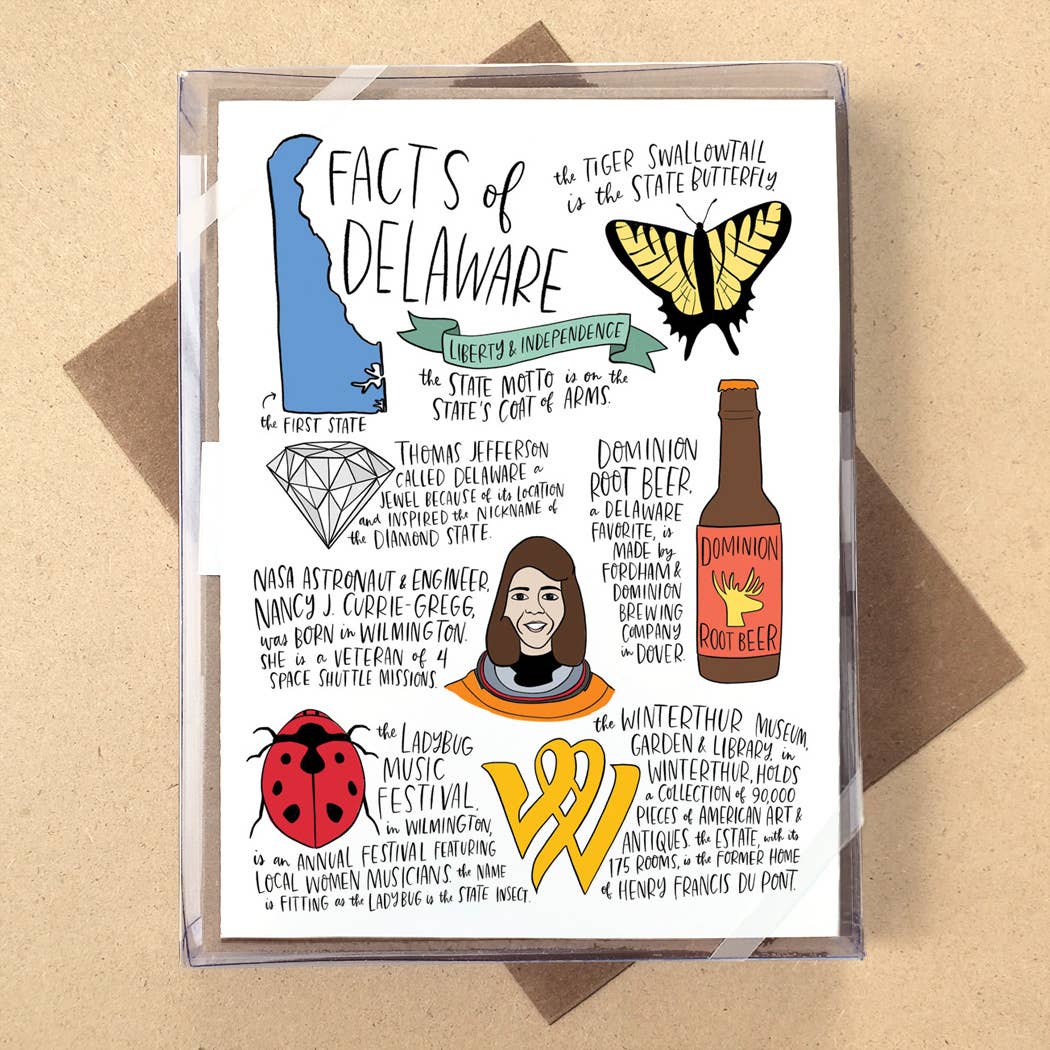 FACTS of
DELAWARE
the FIRST STATE
the TIGER SWALLOWTAIL
is the STATE BUTTERFLY.
LIBERTY & INDEPENDENCE
the STATE MOTTO is on the
STATE'S COAT of ARMS.
THOMAS JEFFERSON
CALLED DELAWARE a
JEWEL BECAUSE of its LOCATION
and INSPIRED the NICKNAME of
the DIAMOND STATE.
DOMINION
ROOT BEER,
a DELAWARE
FAVORITE, is
MADE by
FORDHAM &
DOMINION
BREWING
COMPANY
in DOVER.
DOMINION
ROOT BEER
NASA ASTRONAUT & ENGINEER,
NANCY J. CURRIE-GREGG,
was BORN in WILMINGTON.
SHE is a VETERAN of 4
SPACE SHUTTLE MISSIONS.
the LADYBUG
MUSIC
FESTIVAL,
in WILMINGTON,
is an ANNUAL FESTIVAL FEATURING
LOCAL WOMEN MUSICIANS. the NAME
is FITTING as the LADYBUG is the STATE INSECT.
the WINTERTHUR MUSEUM,
GARDEN & LIBRARY, in
WINTERTHUR, HOLDS
a COLLECTION of 90,000
PIECES of AMERICAN ART &
ANTIQUES. the ESTATE, with its
175 ROOMS, is the FORMER HOME
of HENRY FRANCIS DU PONT.